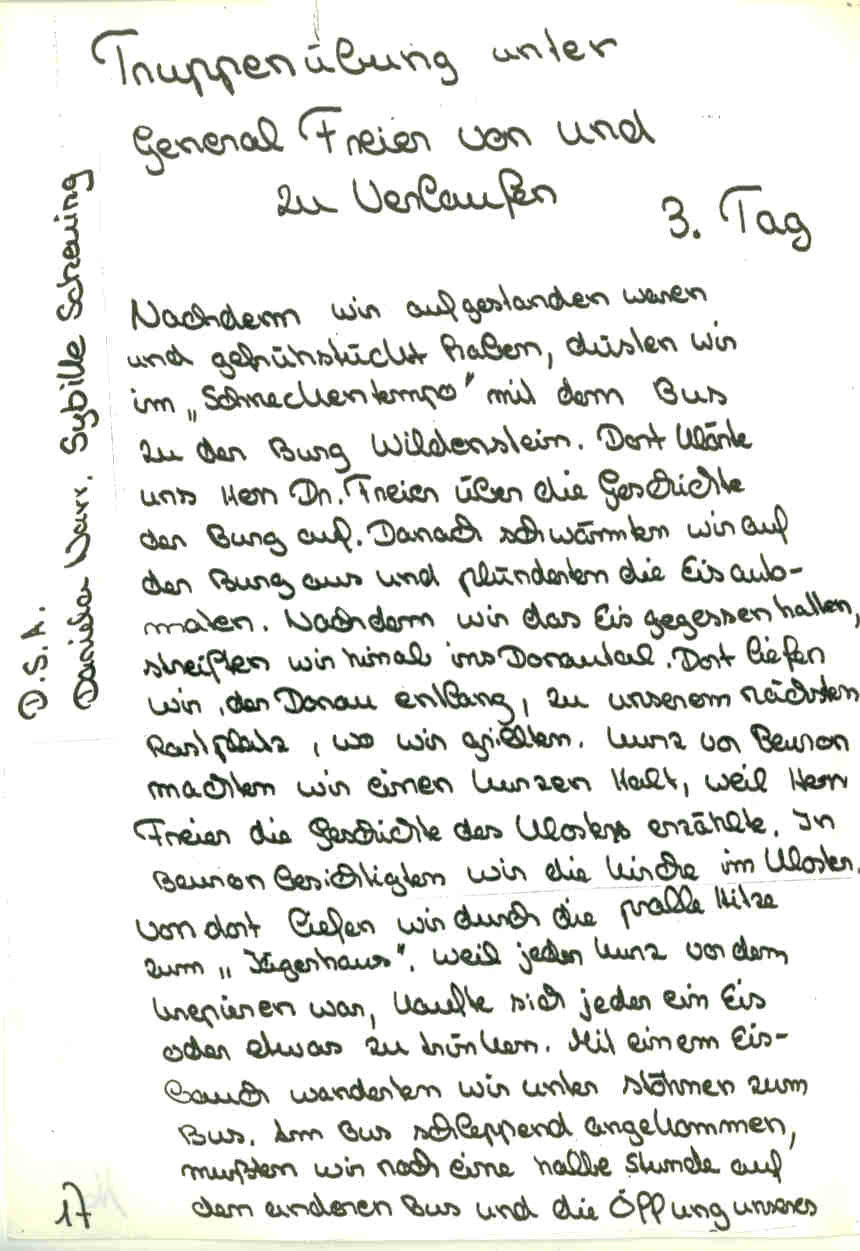 Truppenübung unter
General Freier von und
zu Verlaufen
3. Tag
Nachdem wir aufgestanden waren
und gefrühstückt haben, düsten wir
im „Schneckentempo" mit dem Bus
zu der Burg Wildenstein. Dort klärte
uns Herr Dr. Freier über die Geschichte
der Burg auf. Danach schwärmten wir auf
der Burg aus und plünderten die Eisauto-
maten. Nachdem wir das Eis gegessen hatten,
streiften wir hinab ins Donautal. Dort liefen
wir, der Donau entlang, zu unserem nächsten
Rastplatz, wo wir grillten. Kurz vor Beuron
machten wir einen kurzen Halt, weil Herr
Freier die Geschichte des Klosters erzählte. In
Beuron besichtigten wir die Kirche im Kloster.
Von dort liefen wir durch die pralle Hitze
zum „Jägerhaus". Weil jeder kurz vor dem
krepieren war, kaufte sich jeder ein Eis
oder etwas zu trinken. Mit einem Eis-
bauch wanderten wir unter stöhnen zum
Bus. Am Bus schleppend angekommen,
mußten wir noch eine halbe Stunde auf
den anderen Bus und die Öffung unseres
17
D.S.A.
Daniela Sybille